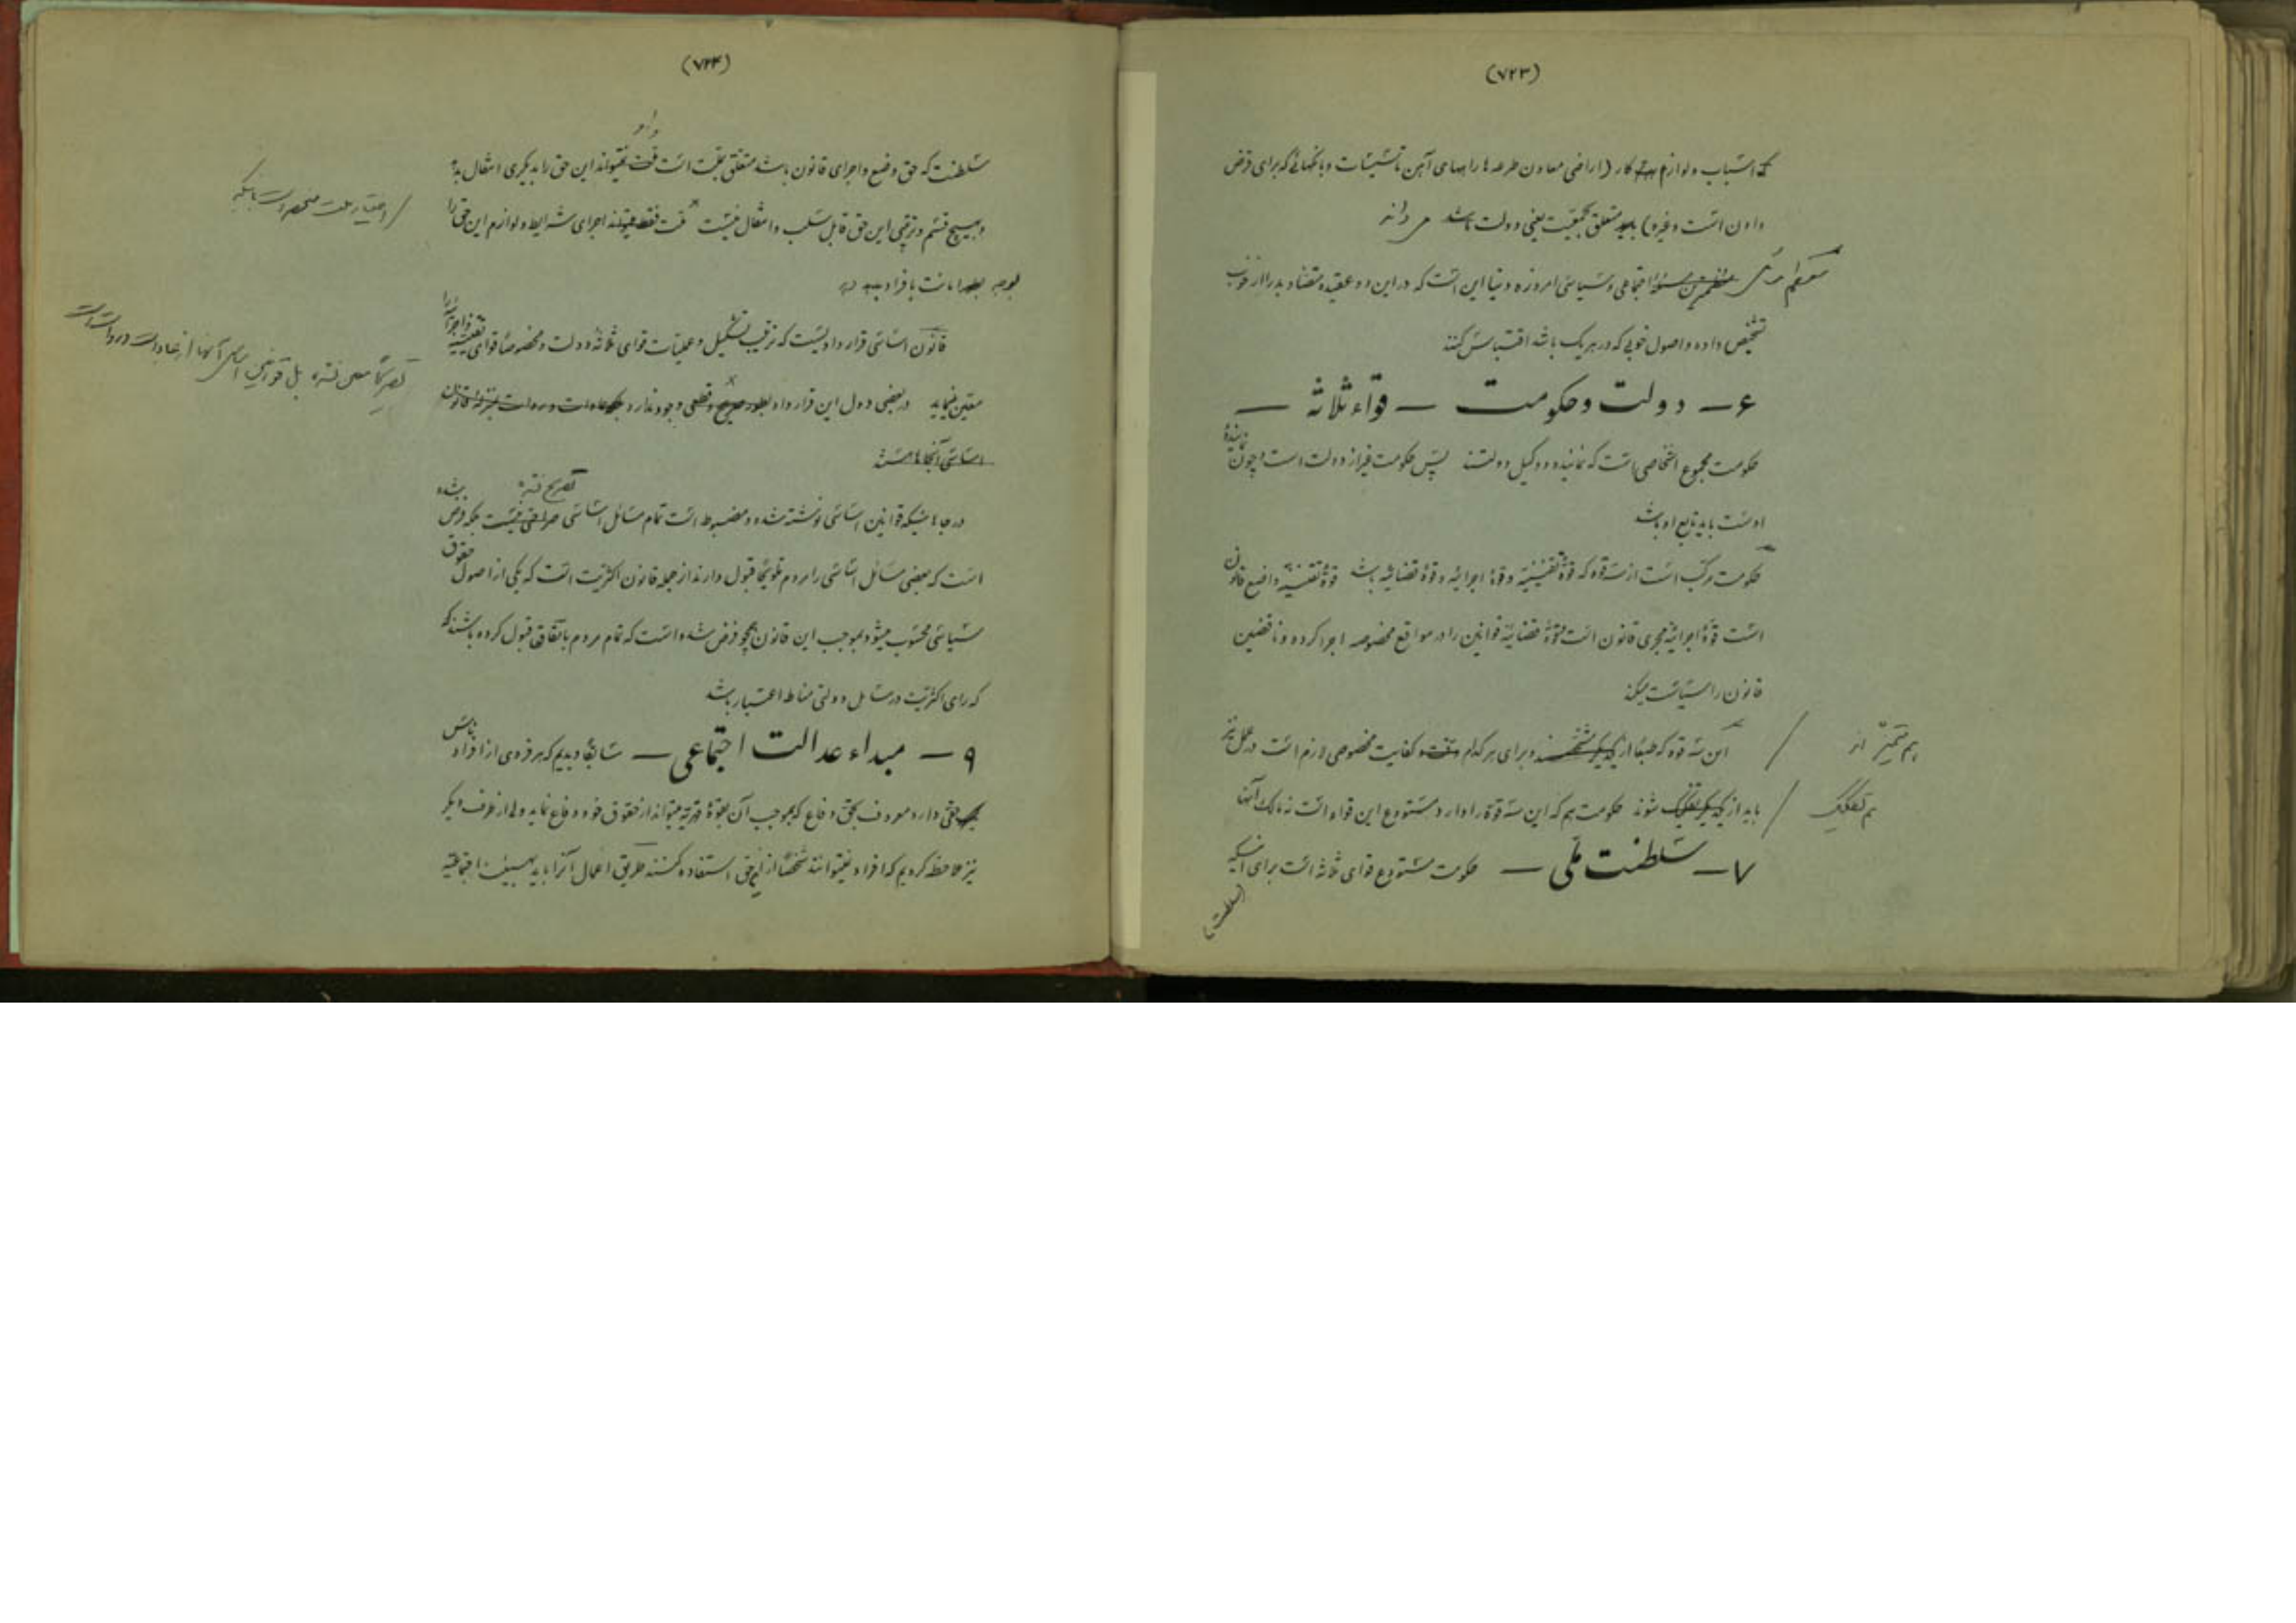 (۷۲۳)
که اسباب و لوازم کار (اراضی معاون طرحه ها راههای آهن تأسیسات و بانکهائی که برای قرض
دادن است و غیره) باید متعلق بجمعیت یعنی دولت باشد می دانند
اجتماعی و سیاسی امروزه دنیا این است که در این دو عقیده متضاد بد را از خوب
تشخیص داده و اصول خوبی که در هر یک باشد اقتباس کنند
۶ — دولت و حکومت — قواء ثلاثه —
حکومت مجموع اشخاصی است که نماینده و وکیل دولتند پس حکومت غیر از دولت است و چون نماینده
اوست باید تابع او باشد
حکومت مرکب است از سه قوه که قوهٔ تقنینیه و قوهٔ اجرائیه و قوهٔ قضائیه باشد قوهٔ تقنینیه واضع قانون
است قوهٔ اجرائیه مجری قانون است قوهٔ قضائیه قوانین را در مواقع مخصوصه اجرا کرده و ناقضین
قانون را سیاست میکند
این سه قوه که طبعاً از یکدیگر و برای هر کدام صفت و کفایت مخصوصی لازم است در عمل نیز
هم متمیز اند
باید از یکدیگر تفکیک شوند حکومت هم که این سه قوه را دارد مستودع این قواء است نه مالک آنها
هم تفکیک
۷ — سلطنت ملی — حکومت مستودع قوای ثلاثه است برای اینکه
(سلطنت)
(۷۲۴)
سلطنت که حق وضع و اجرای قانون باشد متعلق بملت است ملت نمیتواند این حق را بدیگری انتقال بدهد
و بهیچ قسم و ترتیبی این حق قابل سلب و انتقال نیست ملت فقط میتواند اجرای شرایط و لوازم این حق را
و اختیار ملت منحصر است باینکه
بوجه امانت بافراد بدهد
قانون اساسی قرار دادیست که ترتیب تشکیل و عملیات قوای ثلاثه دولت و مخصوصاً قوای تقنینیه و اجرائیه را
معین مینماید در بعضی دول این قرار داد بطور صریح و قطعی وجود ندارد بلکه عادات و رسومات بمنزله قانون
اساسی آنجا ها هستند
در جاهائیکه قوانین اساسی نوشته شده و مضبوط است تمام مسائل اساسی صراحتی نیست بلکه فرض
تصریح نشده
است که بعضی مسائل اساسی را مردم تلویحاً قبول دارند از جمله قانون اکثریت است که یکی از اصول حقوق
سیاسی محسوب میشود بموجب این قانون همچو فرض شده است که تمام مردم باتفاق قبول کرده باشند که
که رای اکثریت در مسایل دولتی مناط اعتبار باشد
۹ — مبداء عدالت اجتماعی — سابقاً دیدیم که هر فردی از افراد ناس
حقی دارد معروف بحق دفاع که بموجب آن بقوهٔ قهریه میتواند از حقوق خود دفاع نماید ولی از طرف دیگر
نیز ملاحظه کردیم که افراد نمیتوانند شخصاً از این حق استفاده کنند طریق اعمال آنرا باید بهیئت اجتماعیه